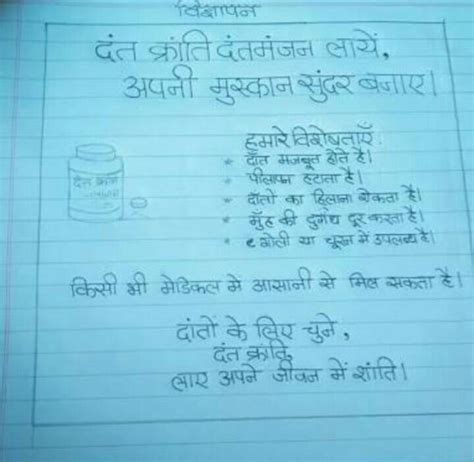 विज्ञापन
दंत क्रांति दंतमंजन लायें,
अपनी मुस्कान सुंदर बनाए।
हमारे विशेषताएँ:
* दाँत मजबूत होते है।
* पीलापन हटाता है।
* दाँतो का हिलाना रोकता है।
* मुँह की दुर्गंध दूर करता है।
* गोली या चूरन में उपलब्ध है।
दंत क्रांति
किसी भी मेडिकल में आसानी से मिल सकता है।
दांतों के लिए चुने,
दंत क्रांति,
लाए अपने जीवन में शांति।